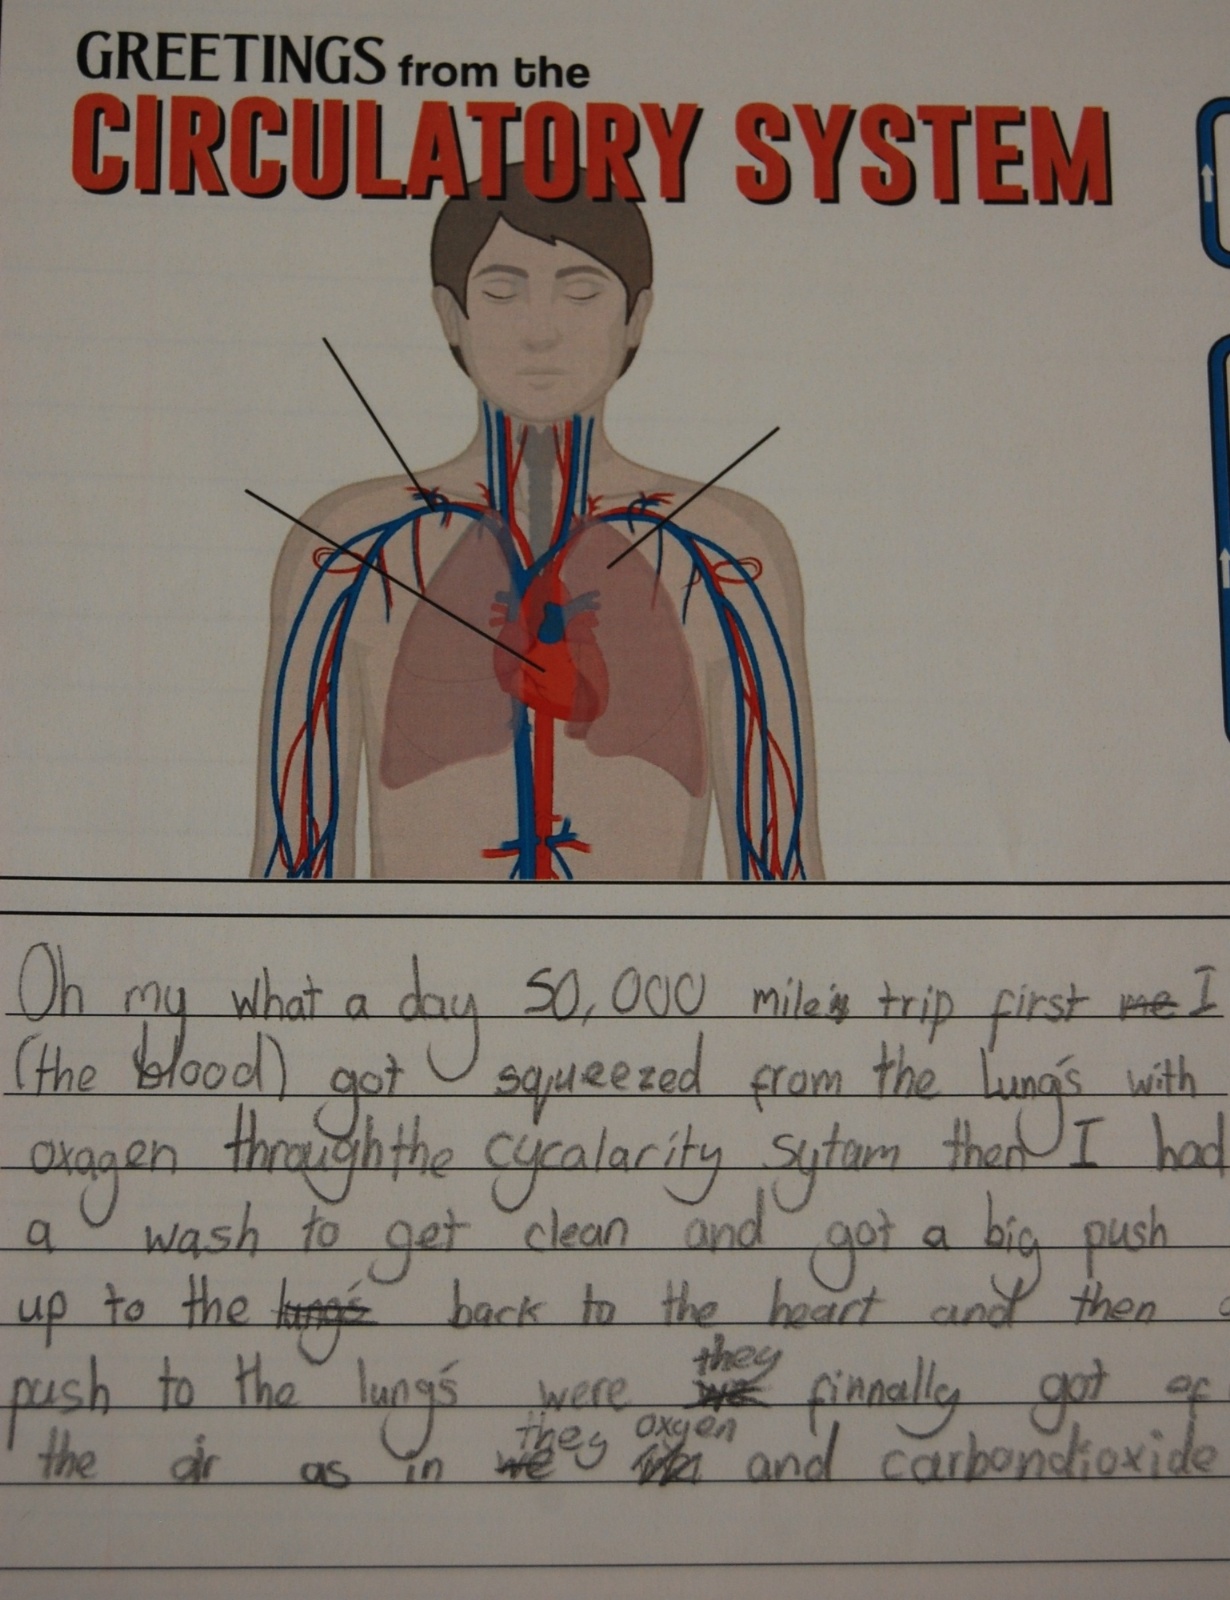 GREETINGS from the
CIRCULATORY SYSTEM
Oh my what a day 50,000 mile's trip first me I
(the blood) got squeezed from the lung's with
oxagen through the cycalarity sytam then I had
a wash to get clean and got a big push
up to the lung's back to the heart and then
push to the lung's were we they finnally got of
the air as in we they oxygen and carbondioxide